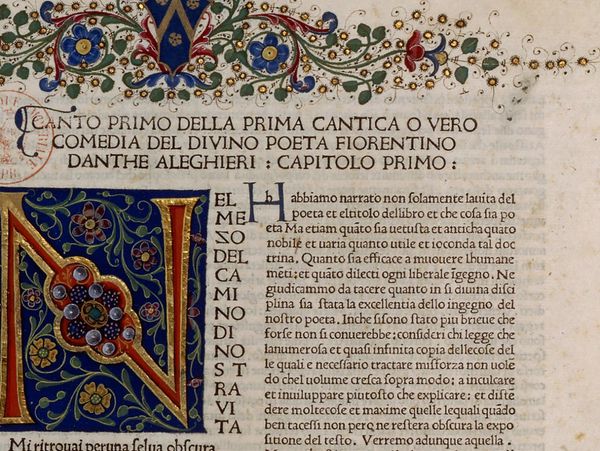 CANTO PRIMO DELLA PRIMA CANTICA O VERO
COMEDIA DEL DIVINO POETA FIORENTINO
DANTHE ALEGHIERI : CAPITOLO PRIMO :
N
EL
ME
ZO
DEL
CA
MI
NO
DI
NO
ST
RA
VI
TA
Mi ritrouai per una selua obscura
Habbiamo narrato non solamente lauita del
poeta et eltitolo dellibro et che cosa sia po
eta Ma etiam quãto sia uetusta et anticha quato
nobile et uaria quanto utile et ioconda tal doc
trina. Quanto sia efficace a muouere lhumane
mẽti; et quãto dilecti ogni liberale ĩgegno. Ne
giudicammo da tacere quanto in si diuina disci
plina sia stata la excellentia dello ingegno del
nostro poeta. Inche sisono stato piu brieue che
forse non si conuerebbe; consideri chi legge che
lanumerosa et quasi infinita copia dellecose del
le quali e necessario tractare misforza non uolẽ
do chel uolume cresca sopra modo; a inculcare
et inuiluppare piutosto che explicare; et distẽ
dere moltecose et maxime quelle lequali quãdo
ben tacessi non pero ne restera obscura la expo
sitione del testo. Verremo adunque aquella.